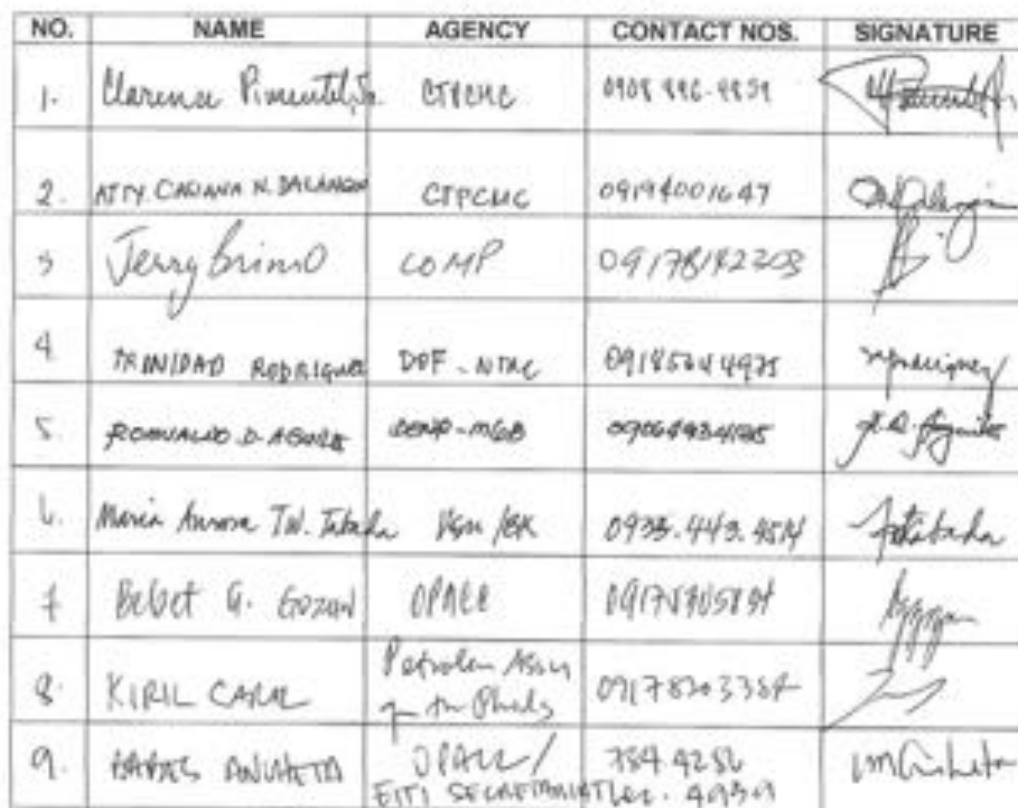 NO. NAME AGENCY CONTACT NOS. SIGNATURE
1. Clarence Pimentel, Jr. CTPCMC 0908 896-4859
2. ATTY. CASIANA N. DALANGIN CTPCMC 09194001647
3 Jerry Brimo COMP 09178142203
4 TRINIDAD RODRIGUEZ DOF - NTRC 09185244975
5. ROMUALDO D. AGUILOS DENR-MGB
6. Maria Aurora T.W. Tabada VSU /BK 0935.443.4514
7 Bebet G. Gozun OPACC 09175705854
8. KIRIL CARAL Petroleum Assn 09178203384
of the Phils
9. ANCHETA OPACC/ 784.4286
EITI SECRETARIAT loc. 4959